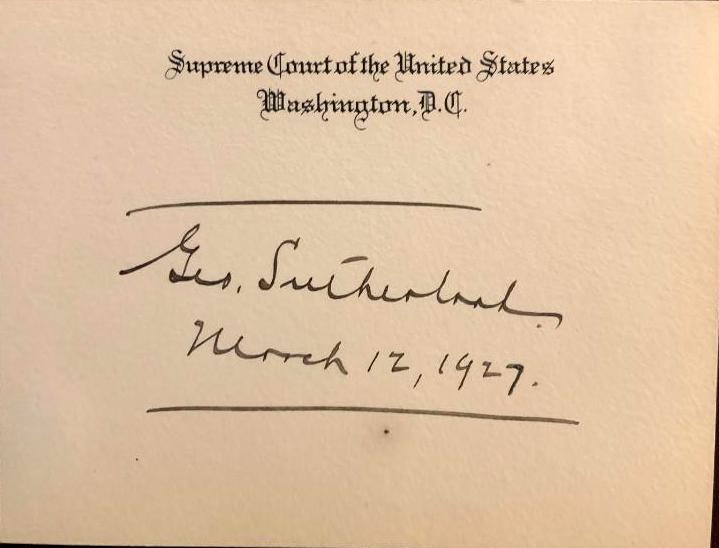 Supreme Court of the United States
Washington, D.C.
Geo. Sutherland.
March 12, 1927.